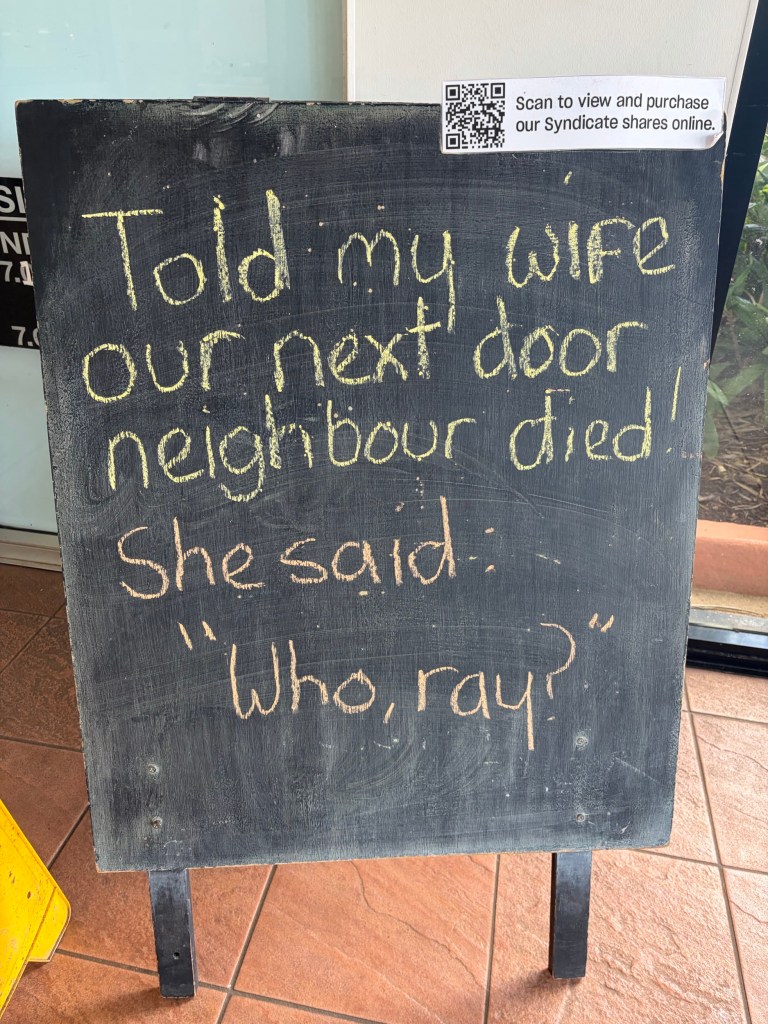 Scan to view and purchase
our Syndicate shares online.
Told my wife
our next door
neighbour died!
She said:
"Who, ray?"